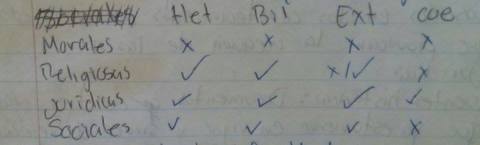 Het Bil Ext coe
Morales x x x x
Religiosas ✓ ✓ x/✓ x
jurídicas ✓ ✓ ✓ ✓
Sociales ✓ ✓ ✓ x